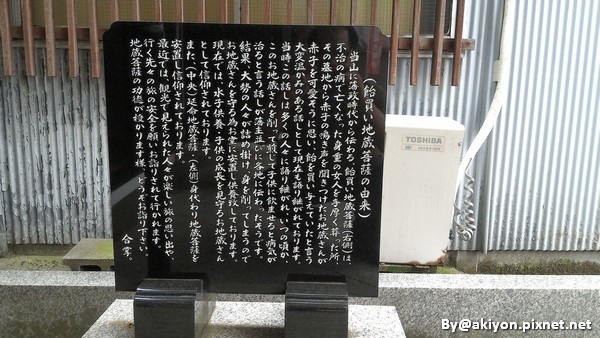 (飴買い地蔵菩薩の由来)
当山に藩政時代から伝わる、飴買い地蔵菩薩(右側)は、
不治の病で亡くなった身重の女人を手厚く葬った所
その墓地から赤子の鳴き声を聞きつけたお地蔵さんが
赤子を可愛そうに思い、飴を買い与えていたと言う
大変温かみのある話しとして現在も語り継がれております。
当時この話しは多くの人々に語り継がれ、いつの頃か、
このお地蔵さんを削って煎じて子供に飲ませると病気が
治ると言う話しが藩主並びに各地に伝わったそうです。
結果、大勢の人々が詰め掛け、身を削ってしまうので
お地蔵さんを守る為お堂に安置し供養致しております。
現在では、水子供養・子供の成長を見守るお地蔵さん
として信仰されております。
また、(中央)延命地蔵菩薩・(左側)身代わり地蔵菩薩を
安置し信仰されております。
最近では、観光で見えられた人々が楽しい旅の思い出や
行く先々の旅の安全を願いお詣りされて行かれます。
地蔵菩薩の功徳が授かります様、どうぞお詣り下さい。
合掌。
TOSHIBA
By@akiyon.pixnet.net